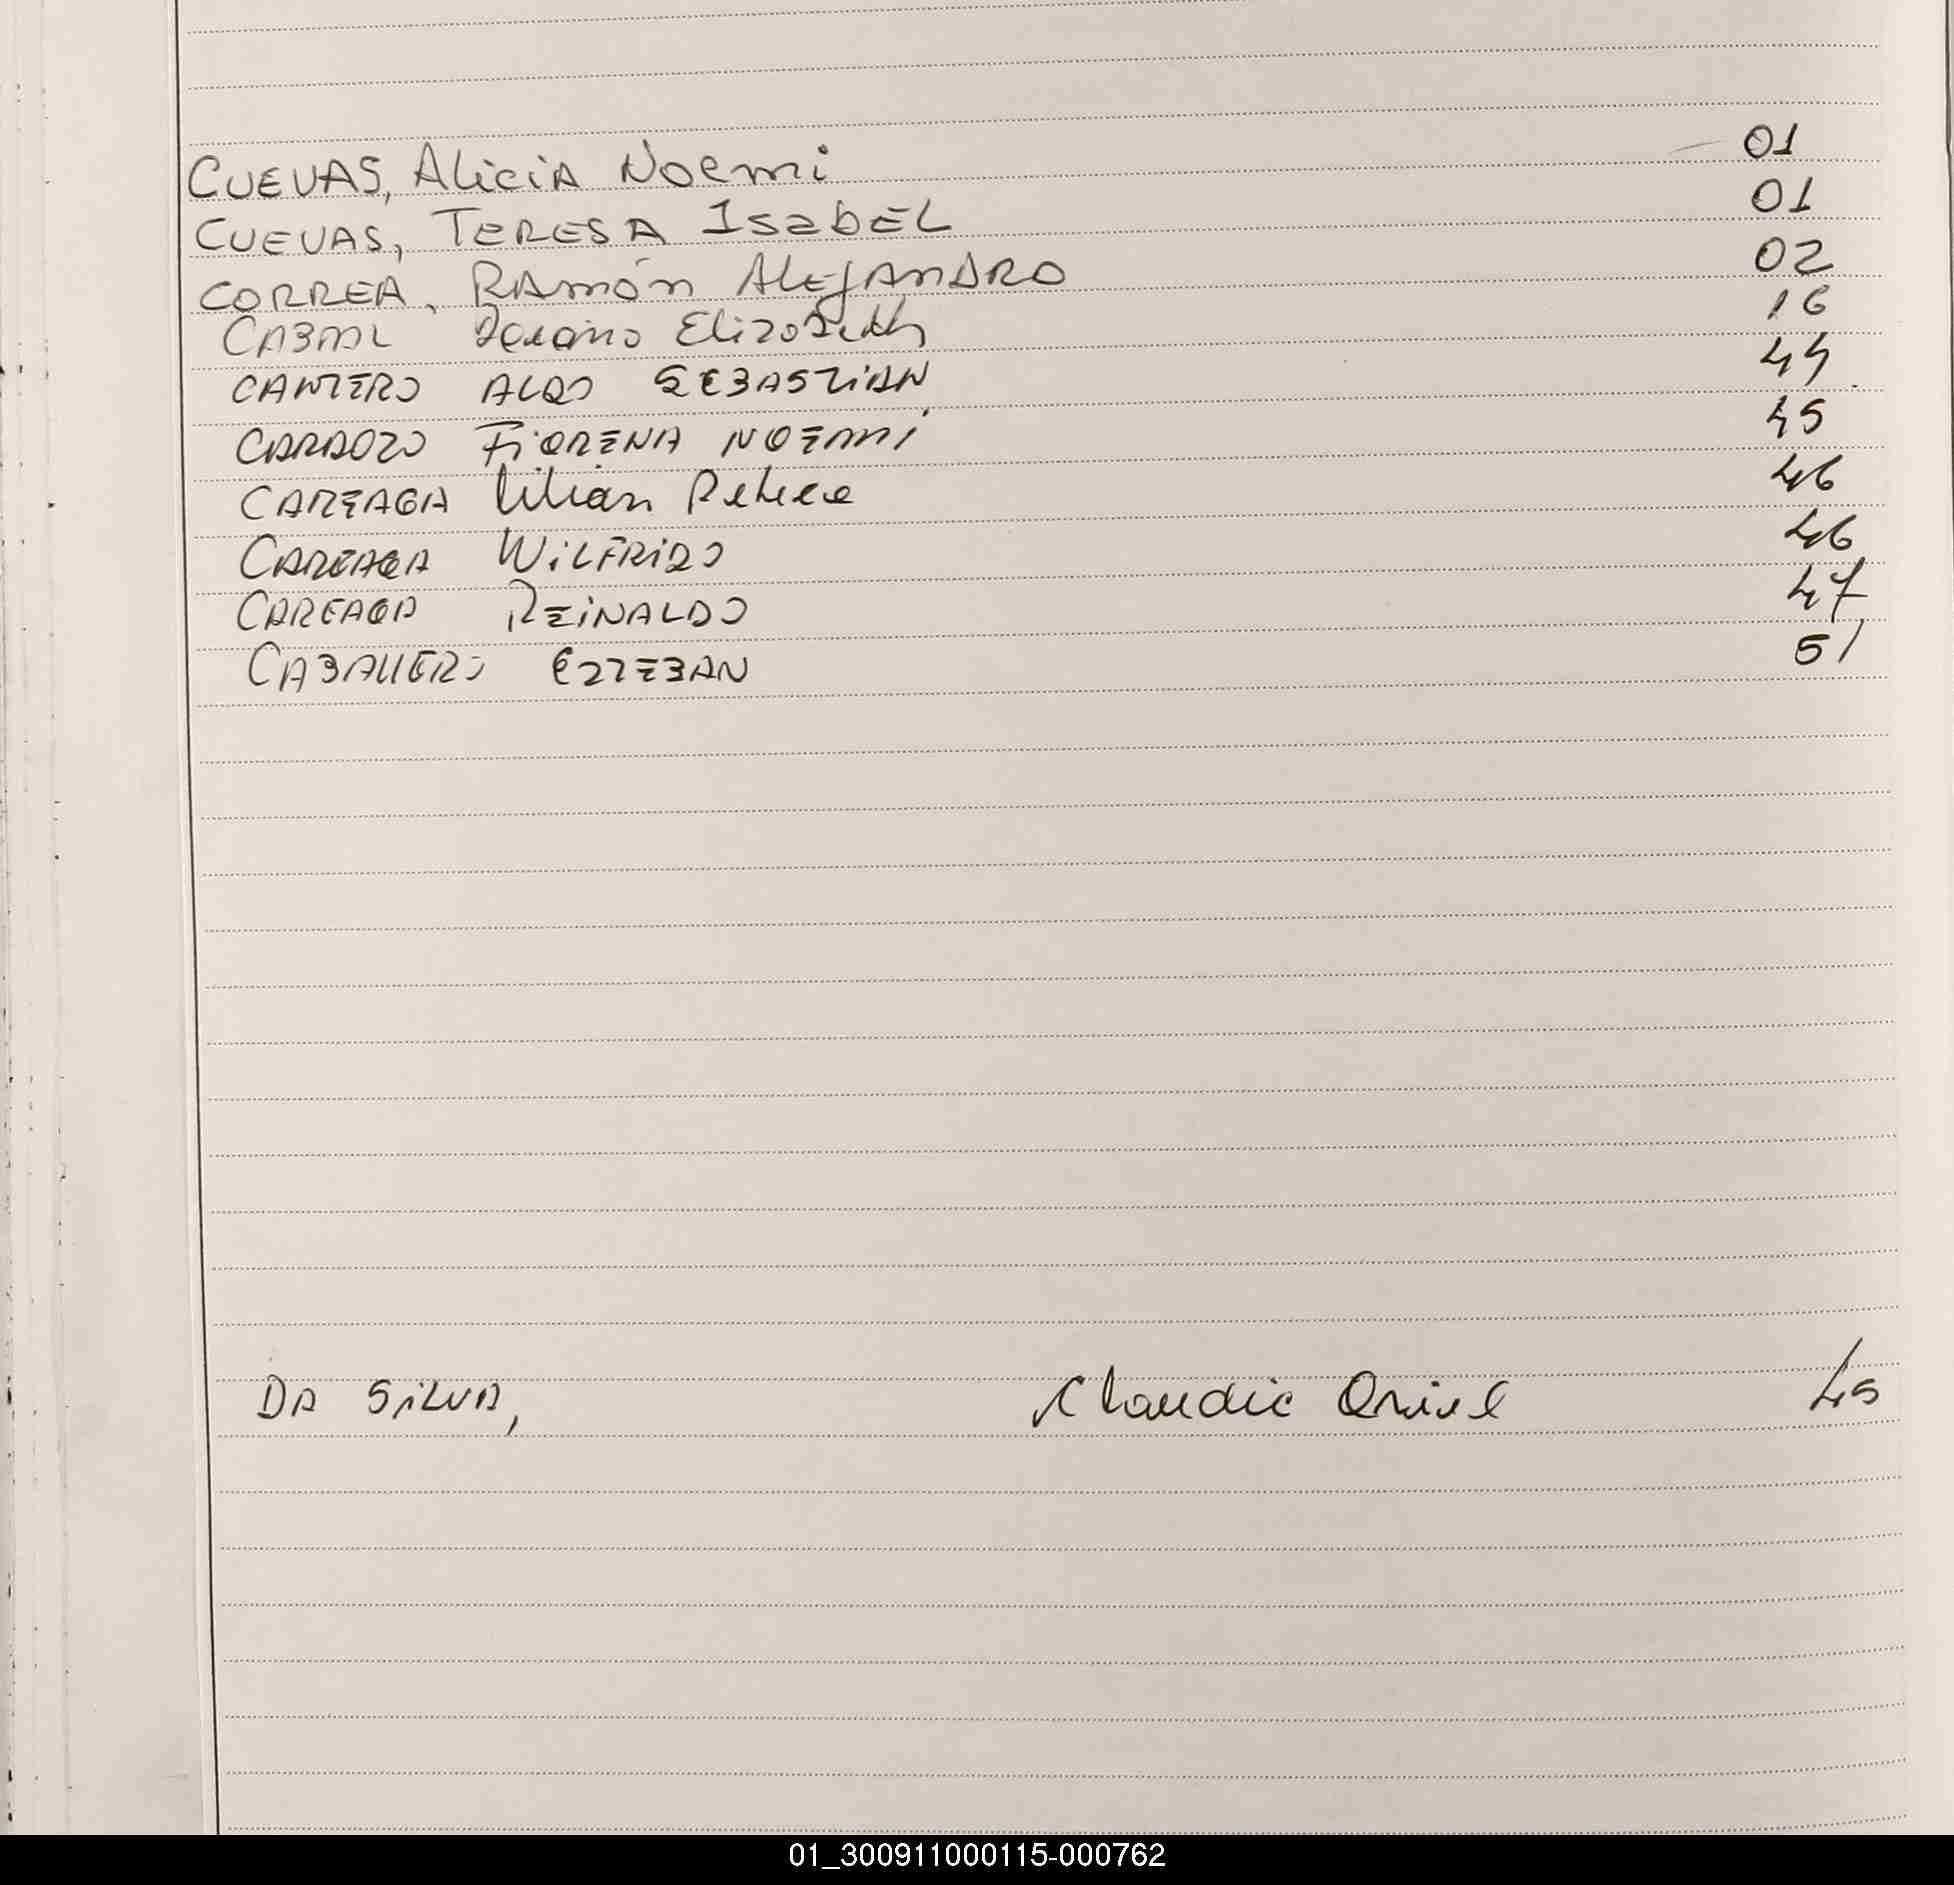 CUEVAS, Alicia Noemi 01
CUEVAS, TERESA Isabel 01
CORREA, Ramón Alejandro 02
CABRAL Elizabeth 16
CANTERO ALDO SEBASTIAN 44
CARDOZO FIORENA NOEMI 45
CAREAGA Lilian Rebeca 46
CAREAGA WILFRIDO 46
CAREAGA REINALDO 47
CABALLERO ESTEBAN 51
DA SILVA, Claudio Oriel 45
01_300911000115-000762